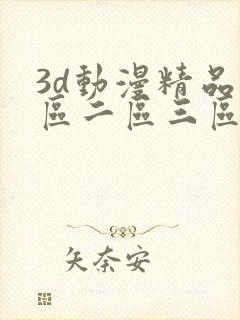 3d動漫精品
區二區三區
矢奈安